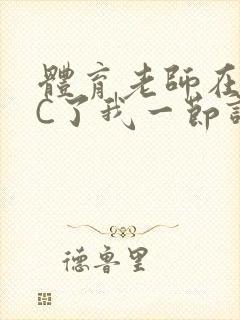 體育老師在
C了我一節
德魯里